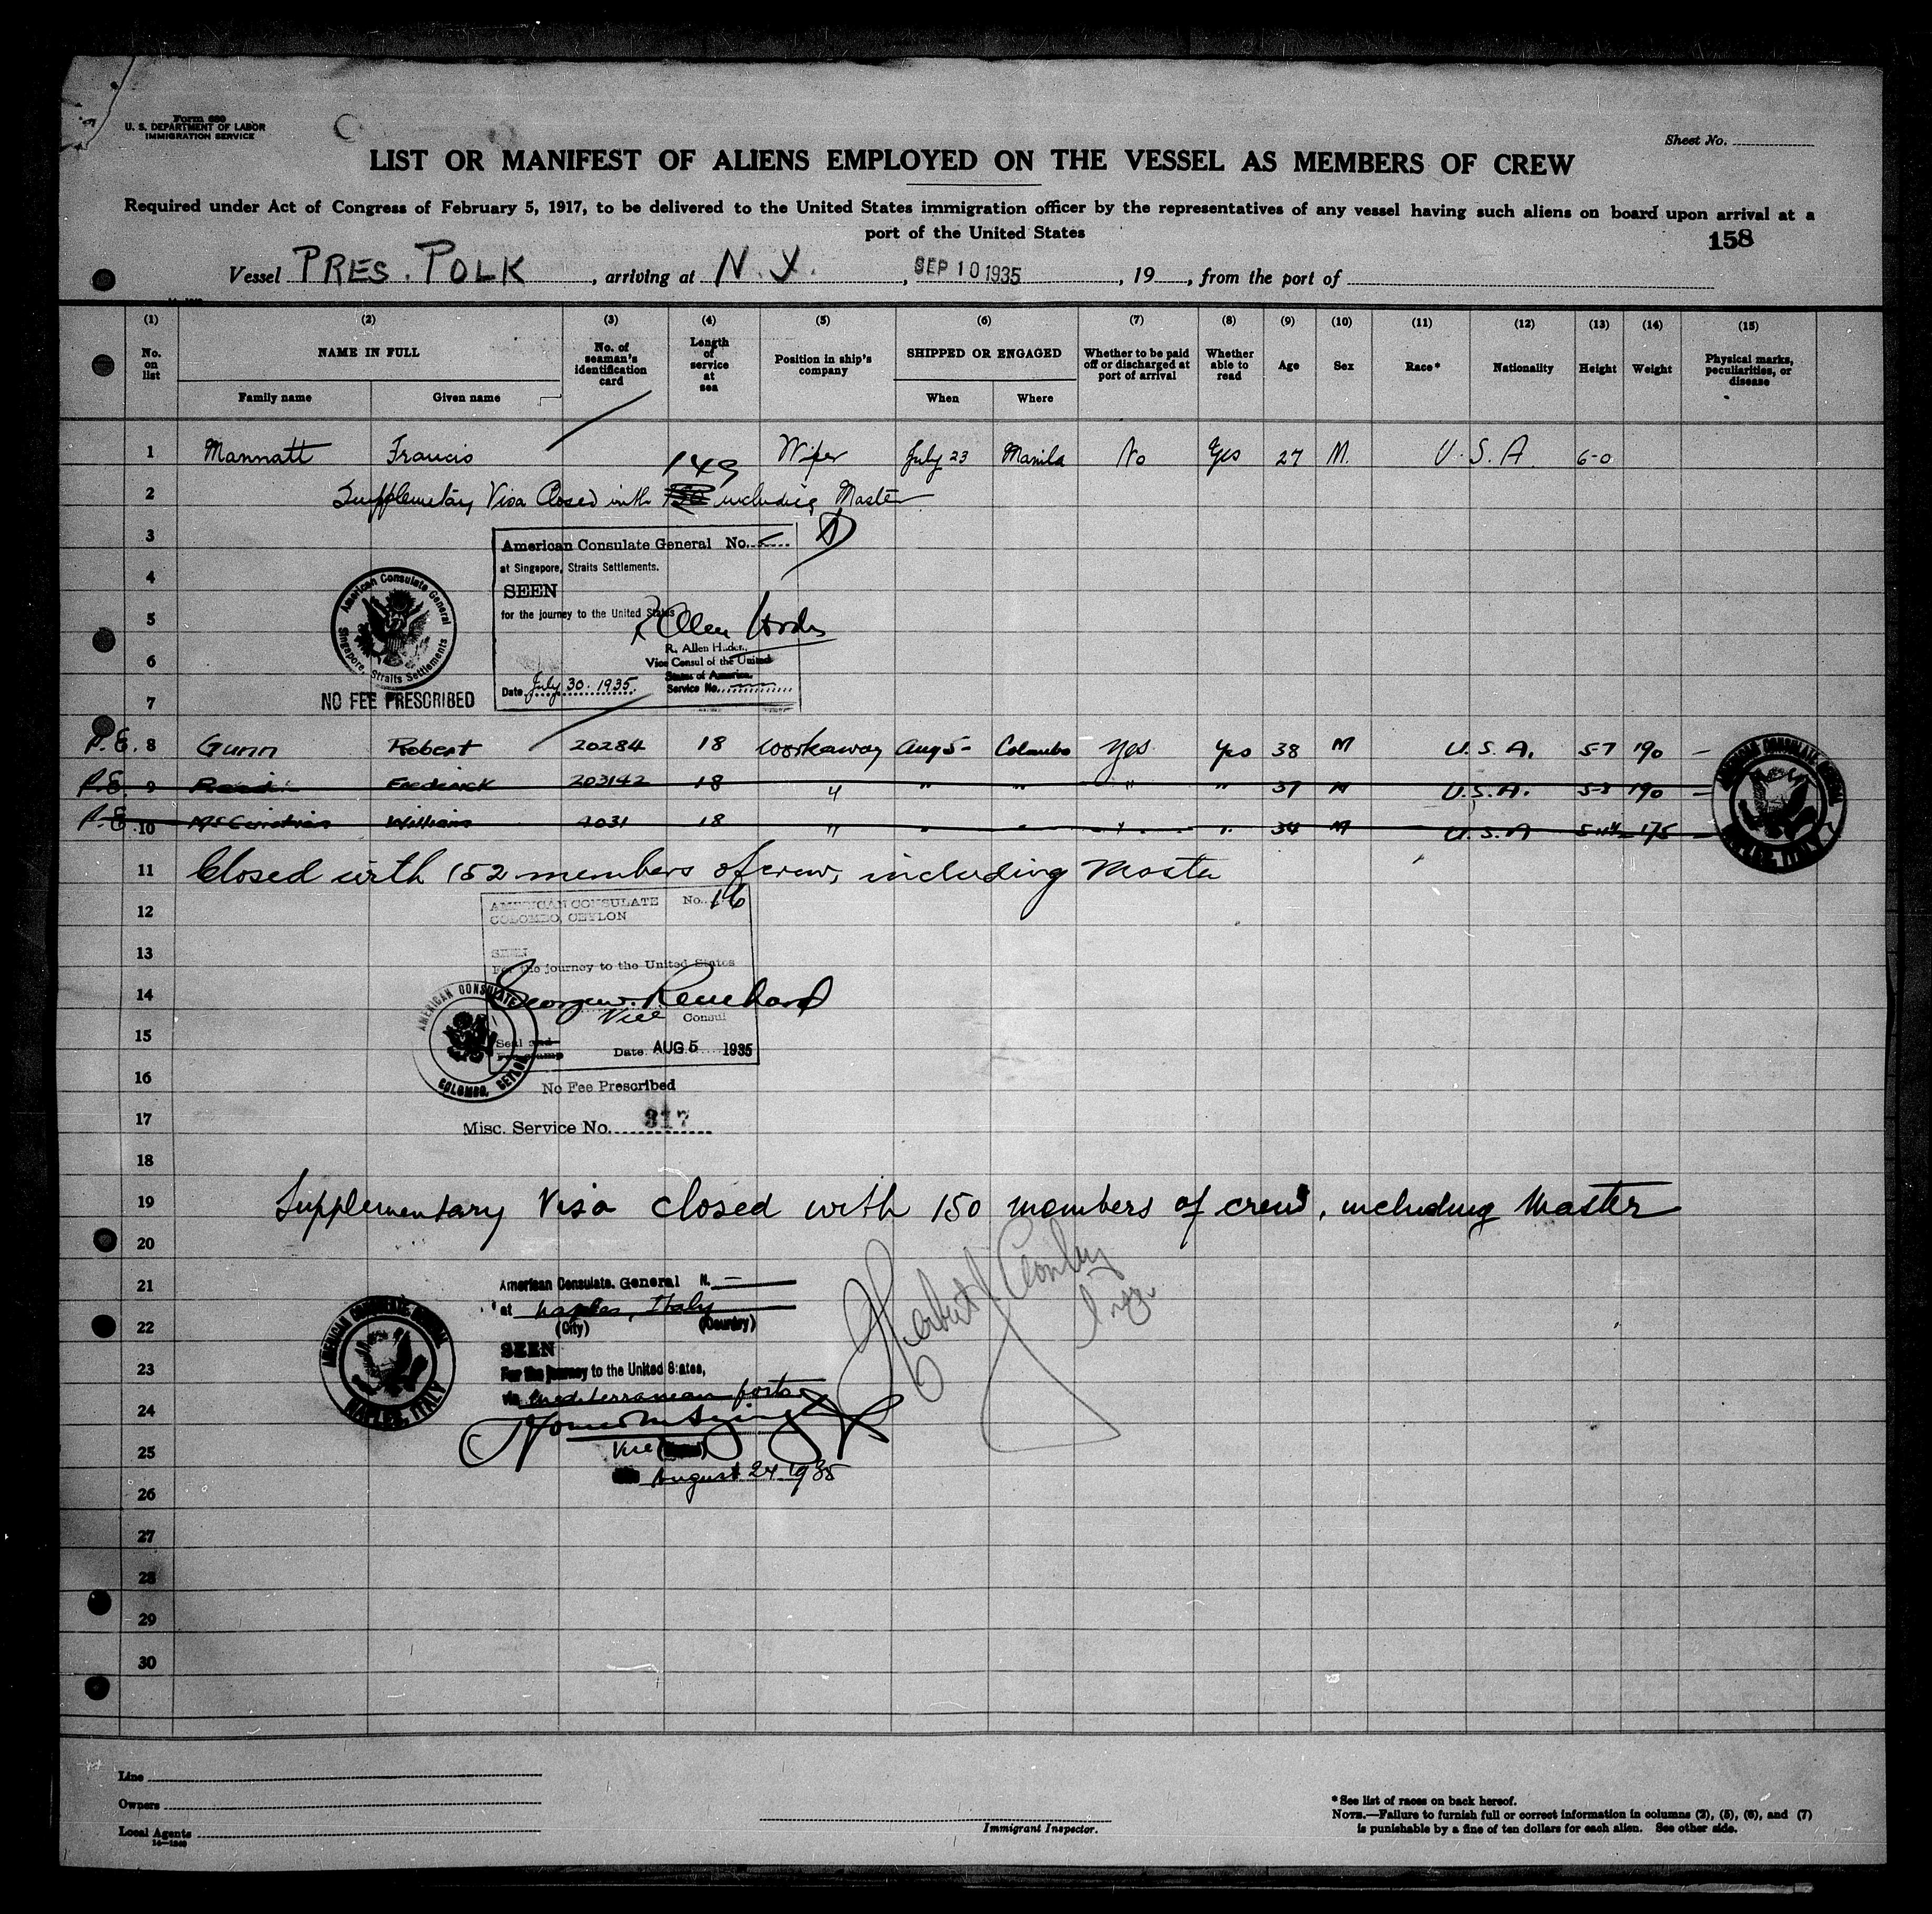 Form 680
U. S. DEPARTMENT OF LABOR
IMMIGRATION SERVICE
Sheet No.
LIST OR MANIFEST OF ALIENS EMPLOYED ON THE VESSEL AS MEMBERS OF CREW
Required under Act of Congress of February 5, 1917, to be delivered to the United States immigration officer by the representatives of any vessel having such aliens on board upon arrival at a
port of the United States
158
Vessel PRES. POLK, arriving at N. Y., SEP 10 1935, 19, from the port of
(1) (2) (3) (4) (5) (6) (7) (8) (9) (10) (11) (12) (13) (14) (15)
No. on list NAME IN FULL No. of seaman's identification card Length of service at sea Position in ship's company SHIPPED OR ENGAGED Whether to be paid off or discharged at port of arrival Whether able to read Age Sex Race* Nationality Height Weight Physical marks, peculiarities, or disease
Family name Given name When Where
1 Mannatt Francis Wiper July 23 Manila No Yes 27 M. U. S. A. 6-0
149
2 Supplementary Visa Closed with including Master
3
American Consulate General No.
at Singapore, Straits Settlements.
4
SEEN
for the journey to the United States
5
R. Allen
6
Vice Consul of the United
States of America.
Date July 30. 1935. Service No.
7
American Consulate General
Singapore, Straits Settlements
NO FEE PRESCRIBED
P.E. 8 Gunn Robert 20284 18 workaway Aug 5- Colombo Yes Yes 38 M U.S.A. 5-7 190 -
P.E. 9 Frederick 203142 18 " " " " " 37 M U.S.A. 190 -
P.E. 10 William 18 " 34 M U.S.A 175 -
AMERICAN CONSULATE GENERAL
NAPLES, ITALY
11 Closed with 152 members of crew, including Master
12
AMERICAN CONSULATE No. 16
COLOMBO, CEYLON
13
SEEN
For the journey to the United States
14
15
Vice Consul
Seal and
Date AUG 5 1935
AMERICAN CONSULATE
COLOMBO, CEYLON
16
No Fee Prescribed
17
Misc. Service No. 317
18
19 Supplementary Visa closed with 150 members of crew, including Master
20
21
American Consulate. General N.
at Naples, Italy
22
(City) (Country)
SEEN
23
For the journey to the United States,
via Mediterranean ports
24
25
Vice
August 24 1935
AMERICAN CONSULATE GENERAL
NAPLES, ITALY
26
27
28
29
30
Line
Owners
Local Agents
Immigrant Inspector.
*See list of races on back hereof.
NOTE.—Failure to furnish full or correct information in columns (2), (5), (6), and (7)
is punishable by a fine of ten dollars for each alien. See other side.